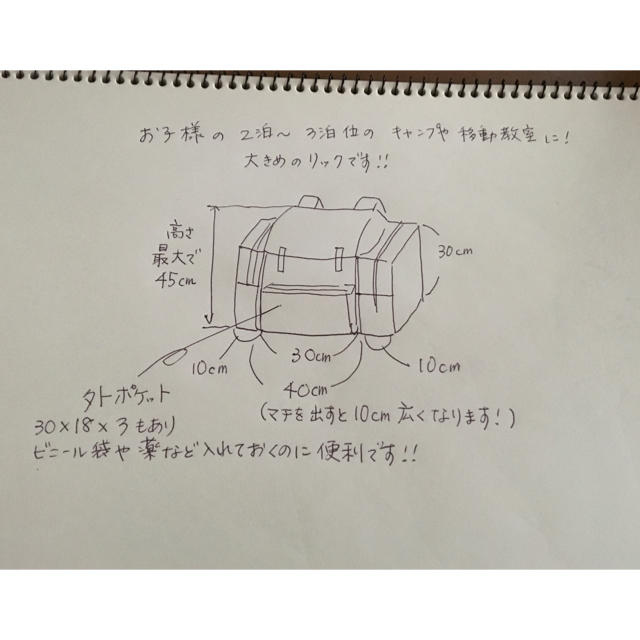 お子様の2泊〜3泊位のキャンプや移動教室に!
大きめのリックです!!
高さ
最大で
45cm
30cm
10cm
30cm
10cm
40cm
(マチを出すと10cm広くなります!)
外ポケット
30×18×3もあり
ビニール袋や薬など入れておくのに便利です!!